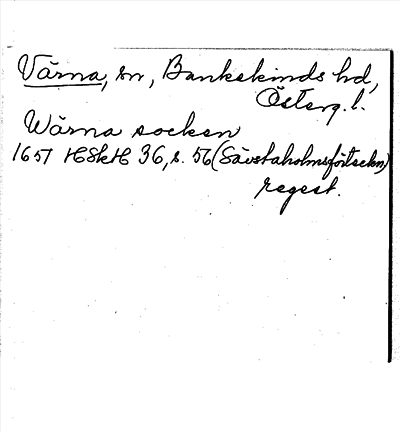 Värna, sn, Bankekinds hd,
Österg. l.
Wärna socken
1657 HSkH 36, s. 56 (Sävstaholmsförteckn)
regest.